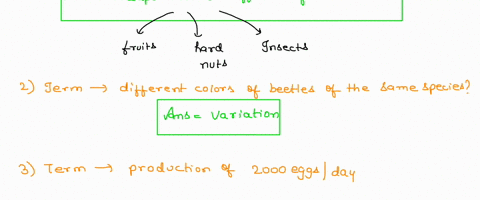 fruits hard Insects
nuts
2) Term → different colors of beetles of the same species?
Ans = variation
3) Term → production of 2000 eggs/day